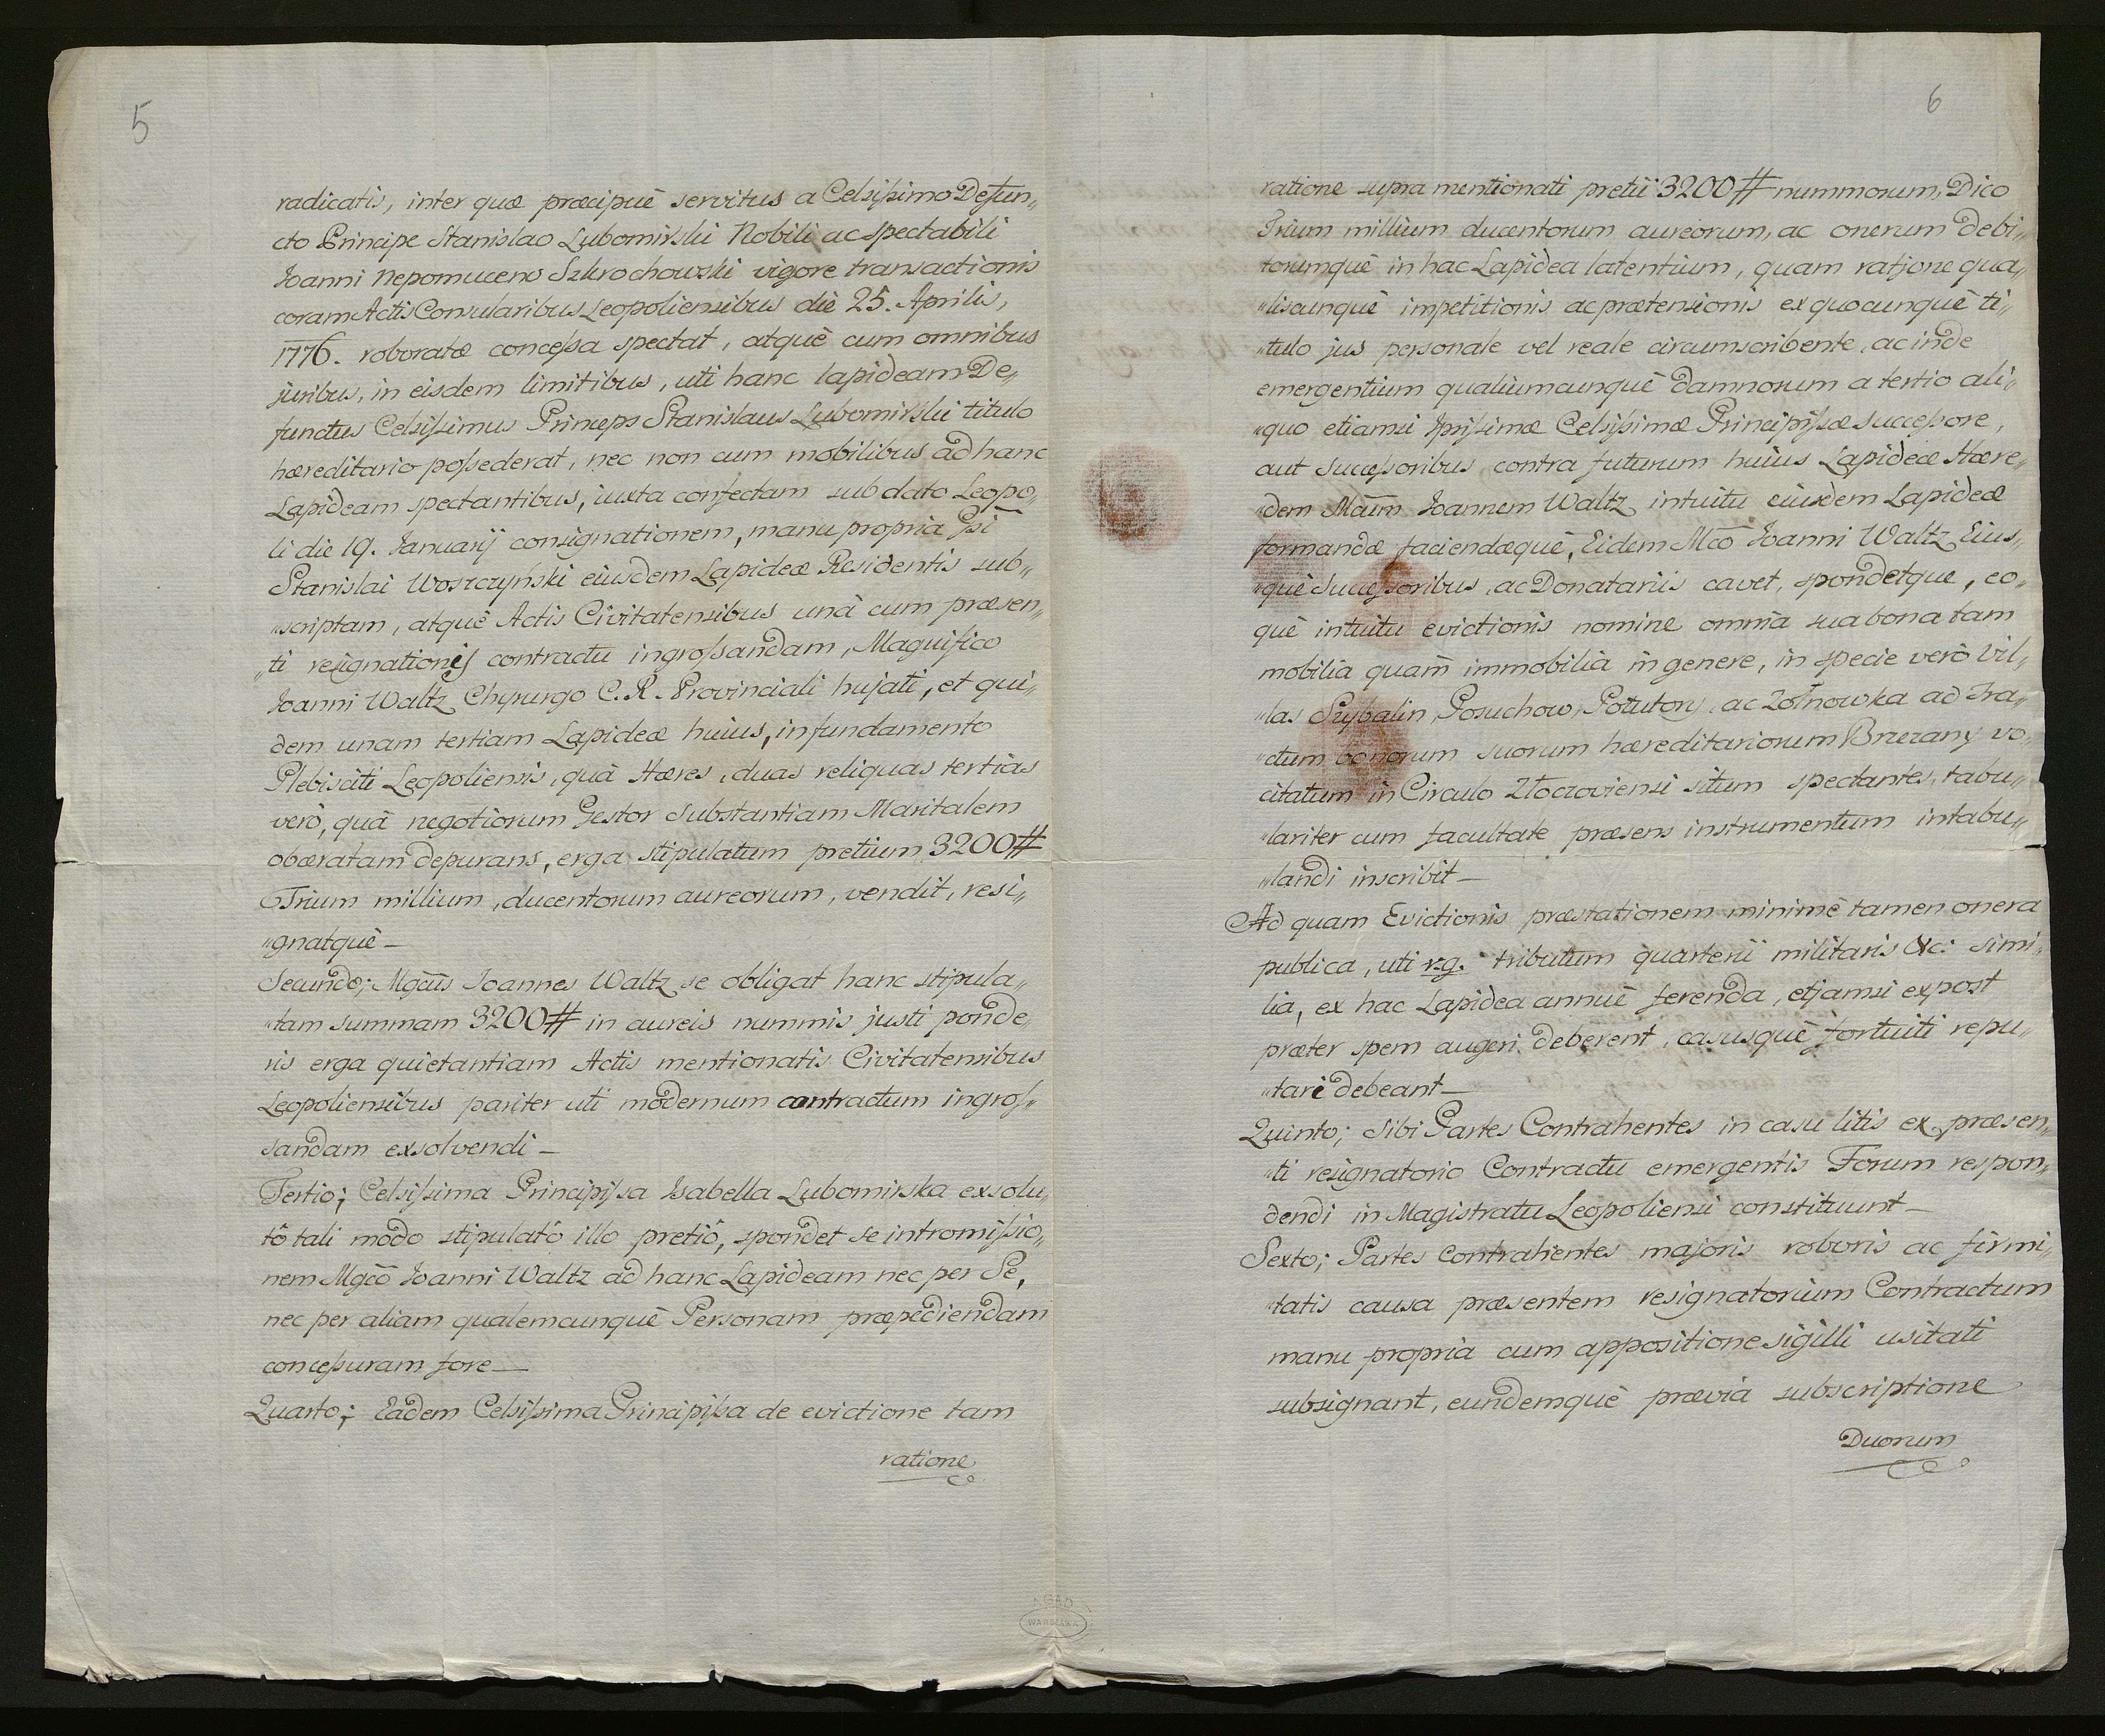 5
radicatis, inter quæ præcipuè servitus a Celsißimo Defun„
cto Principe Stanislao Lubomirski Nobili ac spectabili
Ioanni Nepomuceno Szkrochowski vigore transactionis
coram Actis Consularibus Leopoliensibus die 25. Aprilis,
1776. roboratæ conceßa spectat, atquè cum omnibus
juribus, in eisdem limitibus, uti hanc lapideam De„
functus Celsißimus Princeps Stanislaus Lubomirski titulo
hæreditario poßederat, nec non cum mobilibus ad hanc
Lapideam spectantibus, iuxta confectam sub dato Leopo„
li die 19. Ianuarij consignationem, manu propria
Stanislai Woszczyński eiusdem Lapideæ Residentis sub„
„scriptam, atquè Actis Civitatensibus unà cum præsen„
„ti resignationis contractu ingroßandam, Magnifico
Ioanni Waltz Chyrurgo C. R. Provinciali hujati, et qui„
dem unam tertiam Lapideæ huius, in fundamento
Plebisciti Leopoliensis, quà Hæres, duas reliquas tertias
verò, quà negotiorum Gestor substantiam Maritalem
obæratam depurans, erga stipulatum pretium 3200#
Trium millium, ducentorum aureorum, vendit, resi„
„gnatquè —
Secundo; Mgcus Ioannes Waltz se obligat hanc stipula„
„tam summam 3200# in aureis nummis justi ponde„
ris erga quietantiam Actis mentionatis Civitatensibus
Leopoliensibus pariter uti modernum contractum ingros„
sandam exsolvendi —
Tertio; Celsißima Principißa Isabella Lubomirska exsolu„
tô tali modo stipulatô illo pretiô, spondet se intromißio„
nem Mgcō Ioanni Waltz ad hanc Lapideam nec per Se,
nec per aliam qualemcunquè Personam præpediendam
conceßuram fore —
Quarto; Eadem Celsißima Principißa de evictione tam
ratione
6
ratione supra mentionati pretii 3200# nummorum, Dico
Trium millium ducentorum aureorum, ac onerum debi„
torumquè in hac Lapidea latentium, quam ratione qua„
„liscunquè impetitionis ac prætensionis ex quocunquè ti„
„tulo jus personale vel reale circumscribente, ac inde
emergentium qualiumcunquè damnorum a tertio ali„
„quo etiamsi Ipsißimæ Celsißimæ Principißæ succeßore,
aut Succeßoribus contra futurum huius Lapideæ Hære„
„dem Mcum Ioannem Waltz intuitu eiusdem Lapideæ
formandæ faciendæquè, Eidem Mcō Ioanni Waltz Eius„
„què Succeßoribus, ac Donatariis cavet, spondetque, eo„
què intuitu evictionis nomine omnia sua bona tam
mobilia quam immobilia in genere, in specie verò Vil„
„las Posuchow, Potutory ac Zołnowka ad Tra„
„ctum bonorum suorum hæreditariorum Brzezany vo„
citatum in Circulo Złoczoviensi situm spectantes, tabu„
„lariter cum facultate præsens instrumentum intabu„
„landi inscribit —
Ad quam Evictionis præstationem minimè tamen onera
publica, uti v.g. tributum quarterii militaris &c: simi„
lia, ex hac Lapidea annuè ferenda, etjamsi ex post
præter spem augeri deberent, casusquè fortuiti repu„
„tari debeant —
Quinto; Sibi Partes Contrahentes in casu litis ex præsen„
„ti resignatorio Contractu emergentis Forum respon„
dendi in Magistratu Leopoliensi constituunt —
Sexto; Partes Contrahentes majoris roboris ac firmi„
„tatis causa præsentem resignatorium Contractum
manu propria cum appositione sigilli usitati
subsignant, eundemquè prævia subscriptione
Duorum
AGAD
WARSZAWA